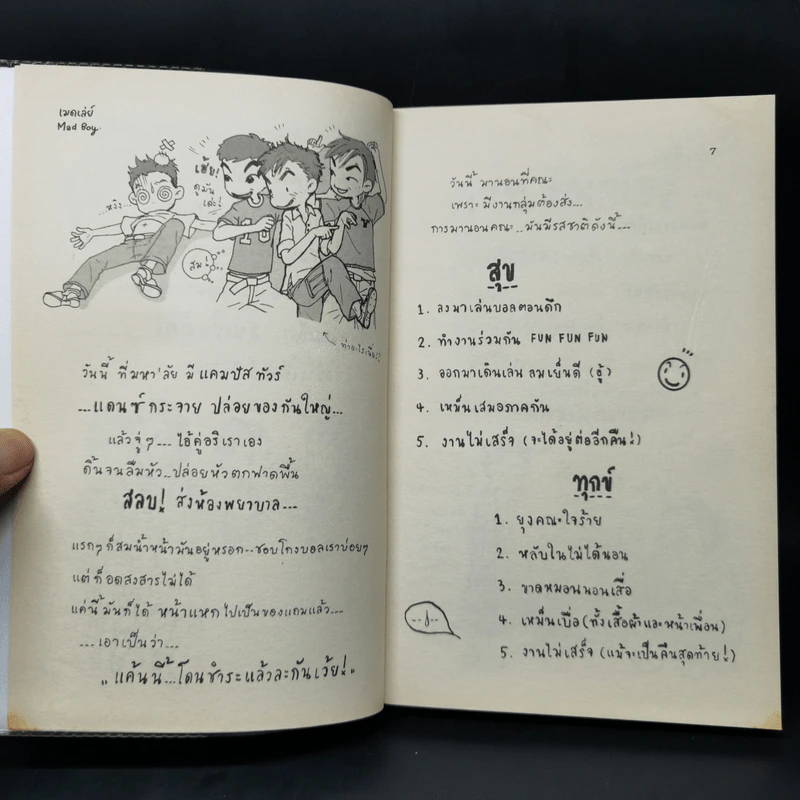 เมดเล่ย์
Mad Boy.
...หงิง...
เฮ้ย!
ดูมัน
เด่ะ!
สม!
วันนี้ ที่มหา'ลัย มี แคมปัส ทัวร์
...แดนซ์ กระจาย ปล่อยของกันใหญ่...
แล้วจู่ๆ... ไอ้คู่อริเราเอง
ดิ้นจนลืมหัว...ปล่อยหัวตกฟาดพื้น
สลบ! ส่งห้องพยาบาล...
แรกๆก็สมน้ำหน้ามันอยู่หรอก...ชอบโกงบอลเราบ่อยๆ
แต่ก็อดสงสารไม่ได้
แค่นี้มันก็ได้ หน้าแหกไปเป็นของแถมแล้ว...
...เอาเป็นว่า...
"แค้นนี้...โดนชำระแล้วละกันเว้ย!"
7
วันนี้ มานอนที่คณะ
เพราะ มีงานกลุ่มต้องส่ง...
การมานอนคณะ..มันมีรสชาติดังนี้...
สุข
1. ลงมาเล่นบอลตอนดึก
2. ทำงานร่วมกัน FUN FUN FUN
3. ออกมาเดินเล่น ลมเย็นดี (ฮู้)
4. เหม็นเสมอภาคกัน
5. งานไม่เสร็จ (จะได้อยู่ต่ออีกคืน!)
ทุกข์
1. ยุงคณะใจร้าย
2. หลับในไม่ได้นอน
3. ขาดหมอนนอนเสื่อ
4. เหม็นเบื่อ (ทั้งเสื้อผ้าและหน้าเพื่อน)
5. งานไม่เสร็จ (แม้จะเป็นคืนสุดท้าย!)